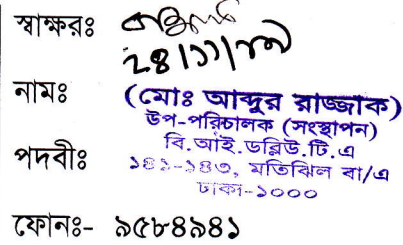 স্বাক্ষরঃ
২৪/১১/০৯
নামঃ (মোঃ আব্দুর রাজ্জাক)
উপ-পরিচালক (সংস্থাপন)
পদবীঃ বি.আই.ডব্লিউ.টি.এ
১৪১-১৪৩, মতিঝিল বা/এ
ঢাকা-১০০০
ফোনঃ- ৯৫৮৪৯৪১